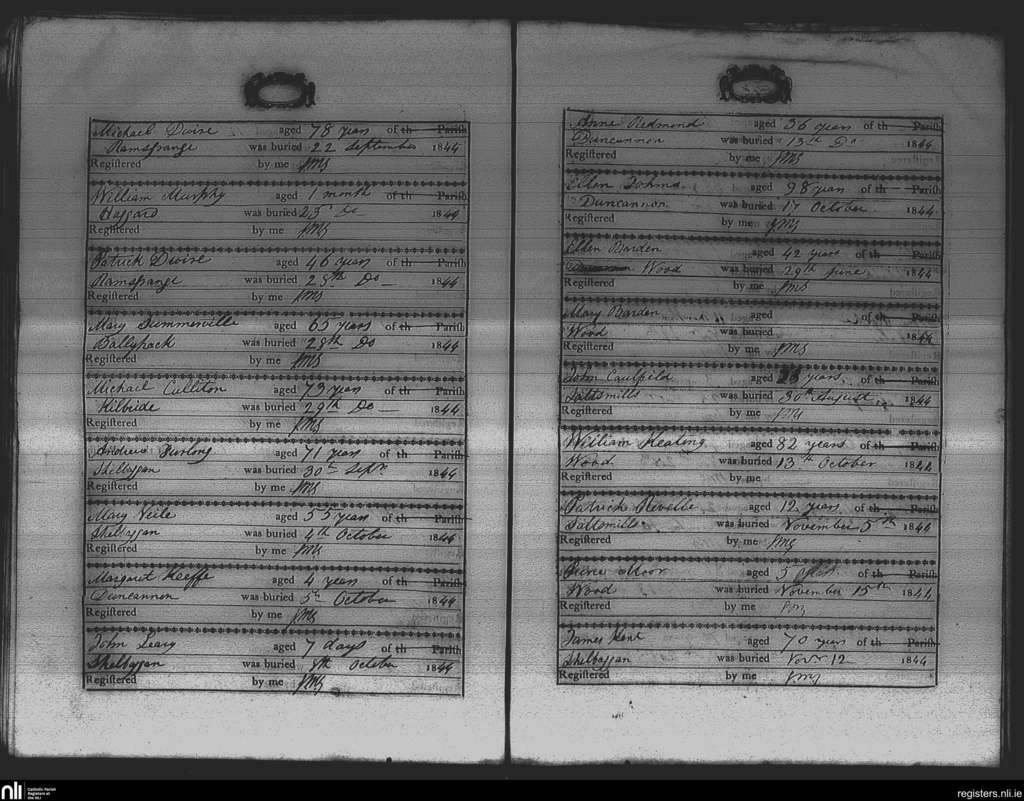 Michael Divire aged 78 years of th Parish
Ramsgrange was buried 22 September 1844
Registered by me JMS
William Murphy aged 1 month of th Parish
Haggard was buried 23d Do 1844
Registered by me JMS
Patrick Divire aged 46 years of th Parish
Ramsgrange was buried 25th Do 1844
Registered by me JMS
Mary Summerville aged 65 years of th Parish
Ballyhack was buried 28th Do 1844
Registered by me JMS
Michael Culliton aged 73 years of th Parish
Kilbride was buried 29th Do 1844
Registered by me JMS
Andrew Furlong aged 71 years of th Parish
Shelbaggan was buried 30th Septr 1844
Registered by me JMS
Mary Veile aged 55 years of th Parish
Shelbaggan was buried 4th October 1844
Registered by me JMS
Margaret Keeffe aged 4 years of th Parish
Duncannon was buried 5th October 1844
Registered by me JMS
John Leary aged 7 days of th Parish
Shelbaggan was buried 8th October 1844
Registered by me JMS
Anne Redmond aged 36 years of th Parish
Duncannon was buried 13th Do 1844
Registered by me JMS
Ellen aged 98 years of th Parish
Duncannon was buried 17 October 1844
Registered by me JMS
Ellen Barden aged 42 years of th Parish
Wood was buried 29th June 1844
Registered by me JMS
Mary Barden aged of th Parish
Wood was buried 1844
Registered by me JMS
John Caulfield aged years of th Parish
Saltsmills was buried 30th August 1844
Registered by me JMS
William Keating aged 82 years of th Parish
Wood was buried 13th October 1844
Registered by me
Patrick Neville aged 12 years of th Parish
Saltsmills was buried November 5th 1844
Registered by me JMS
Pierce Moor aged 5 of th Parish
Wood was buried November 15th 1844
Registered by me JMS
James Kent aged 70 years of th Parish
Shelbaggan was buried Novr 12 1844
Registered by me JMS
nli Catholic Parish Registers at the NLI
registers.nli.ie